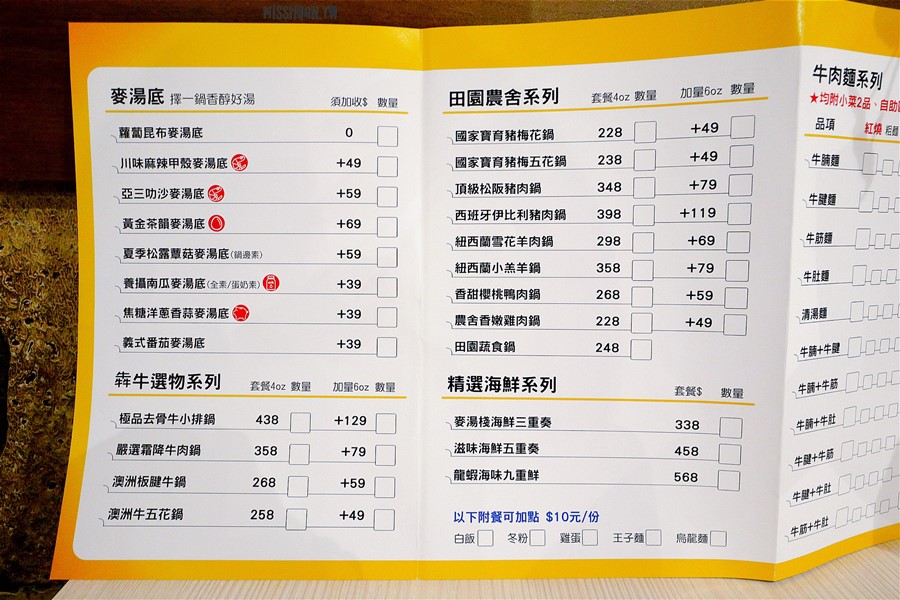 MISSTMORE.TW
麥湯底 擇一鍋香醇好湯 須加收$ 數量
蘿蔔昆布麥湯底 0
川味麻辣甲殼麥湯底 +49
亞三叻沙麥湯底 +59
黃金茶韻麥湯底 +69
夏季松露蕈菇麥湯底(鍋邊素) +59
養攝南瓜麥湯底(全素/蛋奶素) +39
焦糖洋蔥香蒜麥湯底 +39
義式番茄麥湯底 +39
犇牛選物系列 套餐4oz 數量 加量6oz 數量
極品去骨牛小排鍋 438 +129
嚴選霜降牛肉鍋 358 +79
澳洲板腱牛鍋 268 +59
澳洲牛五花鍋 258 +49
田園農舍系列 套餐4oz 數量 加量6oz 數量
國家寶育豬梅花鍋 228 +49
國家寶育豬梅五花鍋 238 +49
頂級松阪豬肉鍋 348 +79
西班牙伊比利豬肉鍋 398 +119
紐西蘭雪花羊肉鍋 298 +69
紐西蘭小羔羊鍋 358 +79
香甜櫻桃鴨肉鍋 268 +59
農舍香嫩雞肉鍋 228 +49
田園蔬食鍋 248
精選海鮮系列 套餐$ 數量
麥湯棧海鮮三重奏 338
滋味海鮮五重奏 458
龍蝦海味九重鮮 568
以下附餐可加點 $10元/份
白飯 冬粉 雞蛋 王子麵 烏龍麵
牛肉麵系列
★均附小菜2品、自助
品項 紅燒 粗麵
牛腩麵
牛腱麵
牛筋麵
牛肚麵
清湯麵
牛腩+牛腱
牛腩+牛筋
牛腩+牛肚
牛腱+牛筋
牛腱+牛肚
牛筋+牛肚